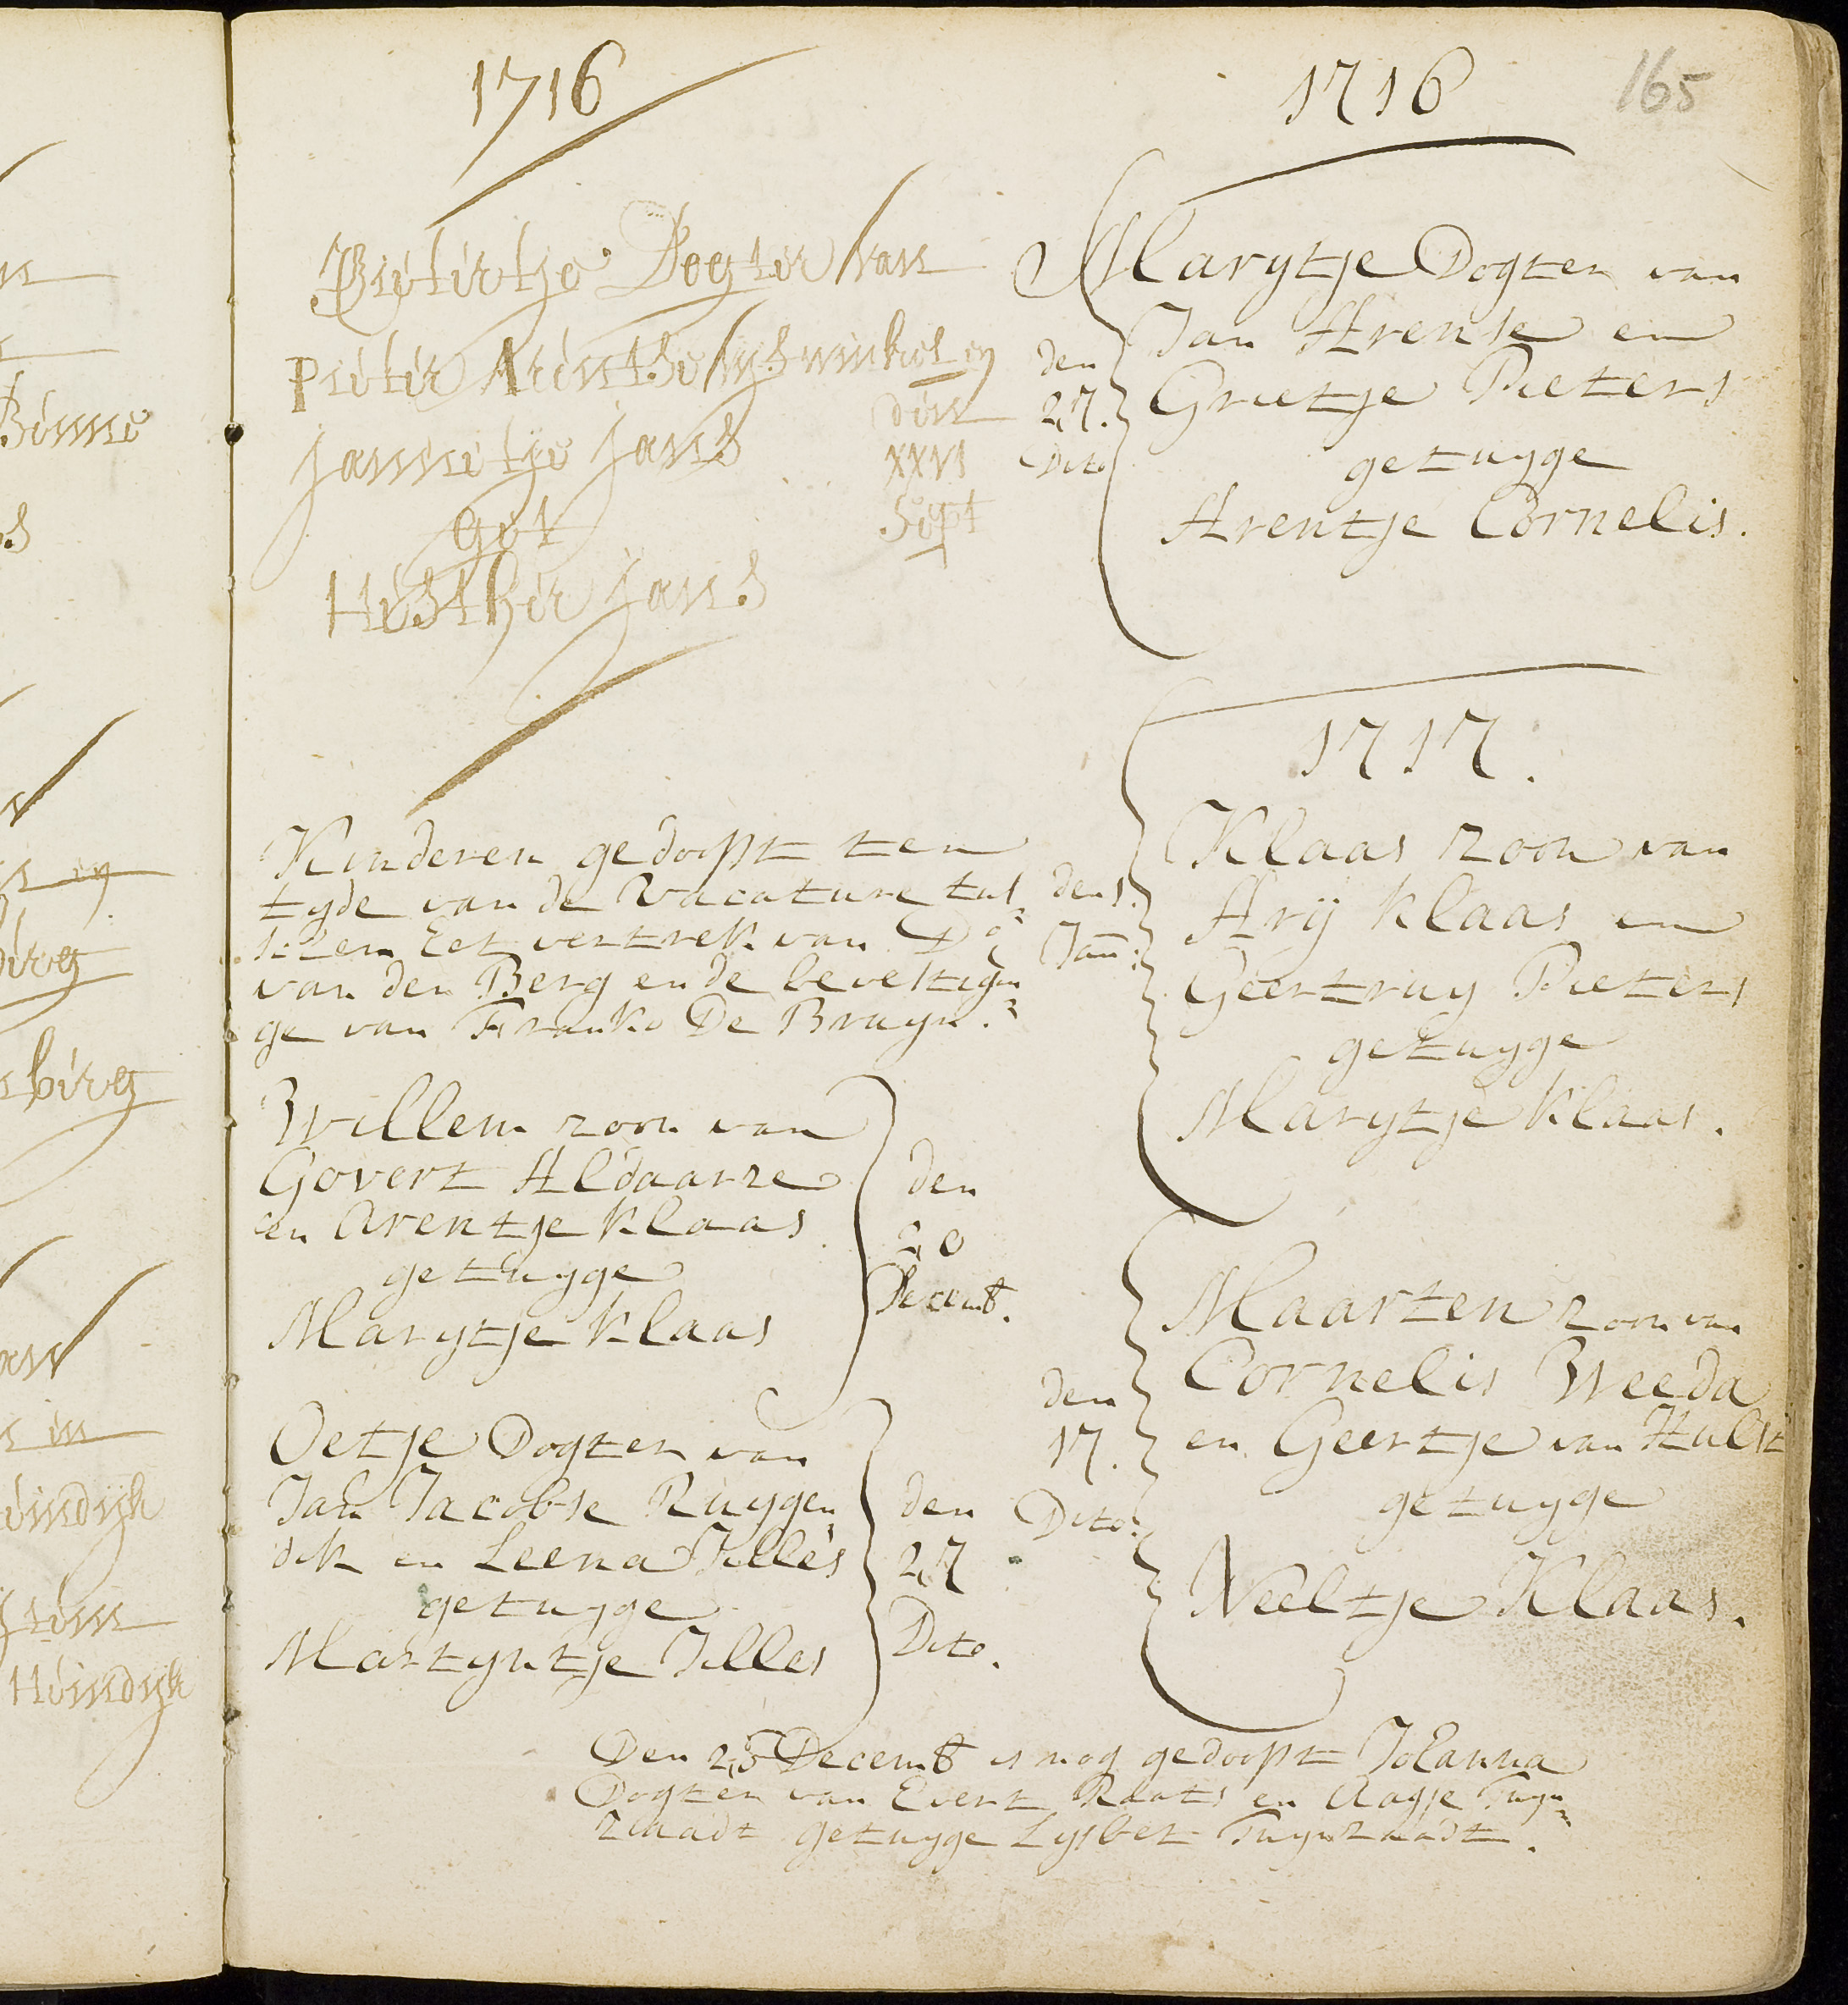 1716
Pietertje Dogter van
Pieter Arentse Ijswinkel en
Jannetje Jans
den
XXVI
Sept
get
Hesther Jans
Kinderen gedoopt ten
tyde van de vacature tus
schen het vertrek van Do
van den Berg en de bevestigin
ge van Franko De Bruyn.
Willem zoon van
Govert Aldaarze
en Arentje Klaas
getuyge
Marytje Klaas
den
20
Decemb.
Oetje Dogter van
Jan Jacobse Ruygen
dik en Leena Jilles
getuyge
Martyntje Jilles
den
27
Dito.
1716
165
Marytje Dogter van
Jan Arense en
Grietje Pieters
getuyge
Arentje Cornelis.
den
27.
Dito
1717.
Klaas zoon van
Arij Klaas en
Geertruy Pieters
getuyge
Marytje Klaas.
den 1.
Jan:
Maarten zoon van
Cornelis Weeda
en Geertje van Hulst
getuyge
Neeltje Klaas.
den
17.
Dito.
Den 25 Decemb is nog gedoopt Johanna
Dogter van Evert Raats en Aagje Tuyn
zaadt getuyge Lysbet Tuynzaadt.